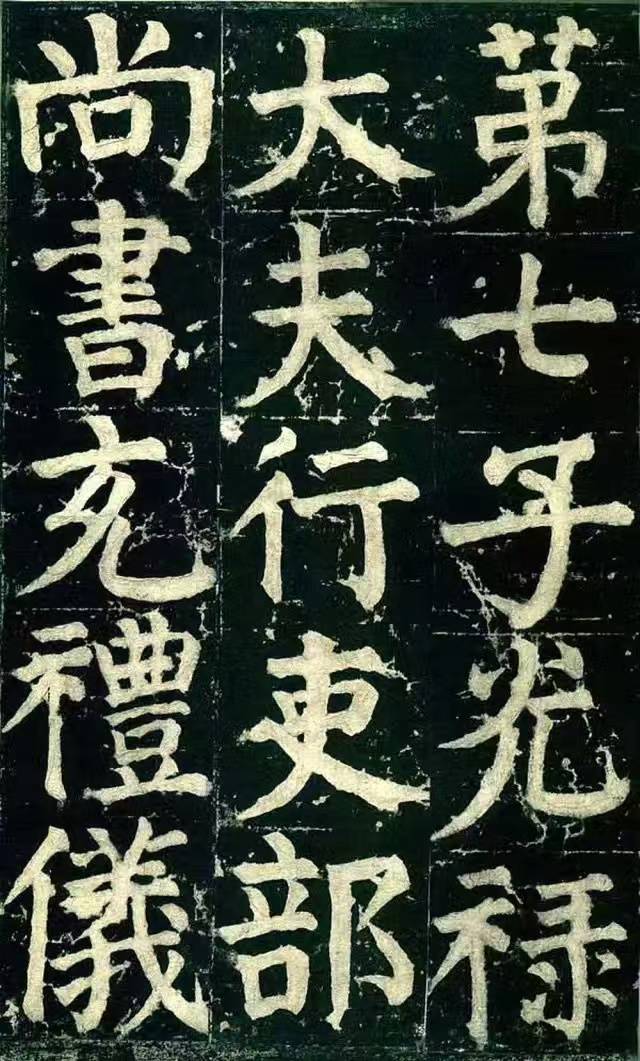 第七子光禄
大夫行吏部
尚書充禮儀